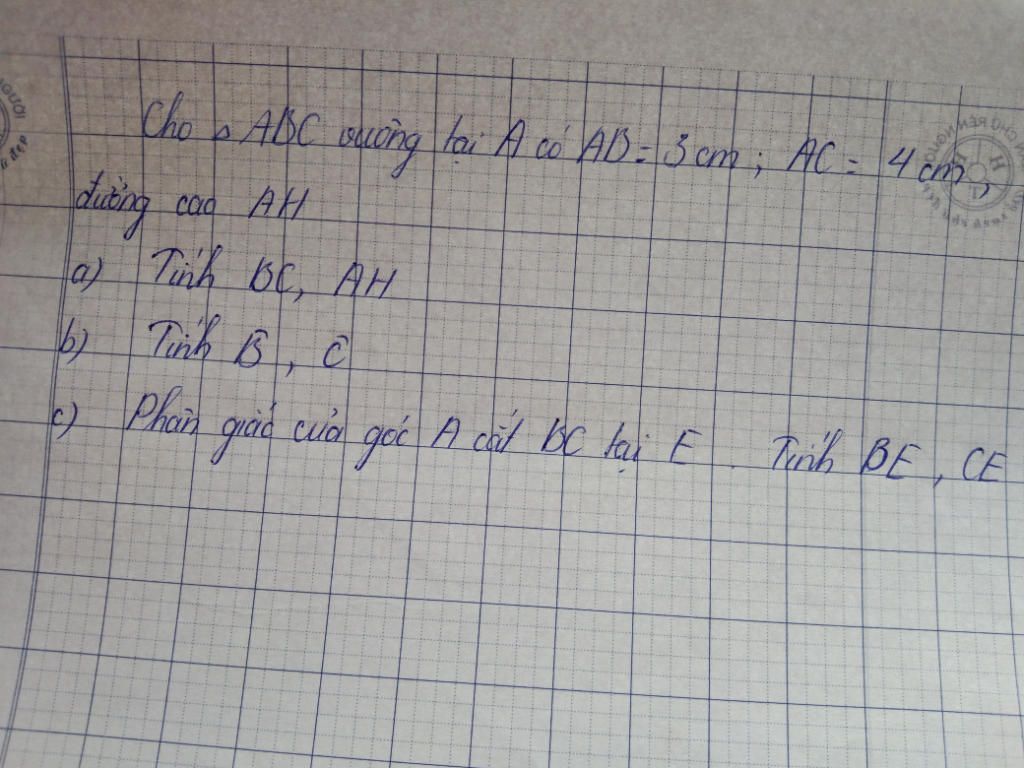 Cho △ ABC vuông tại A có AB = 3 cm ; AC = 4 cm ,
đường cao AH
a) Tính BC, AH
b) Tính B̂ , Ĉ
c) Phân giác của góc A cắt BC tại E . Tính BE , CE